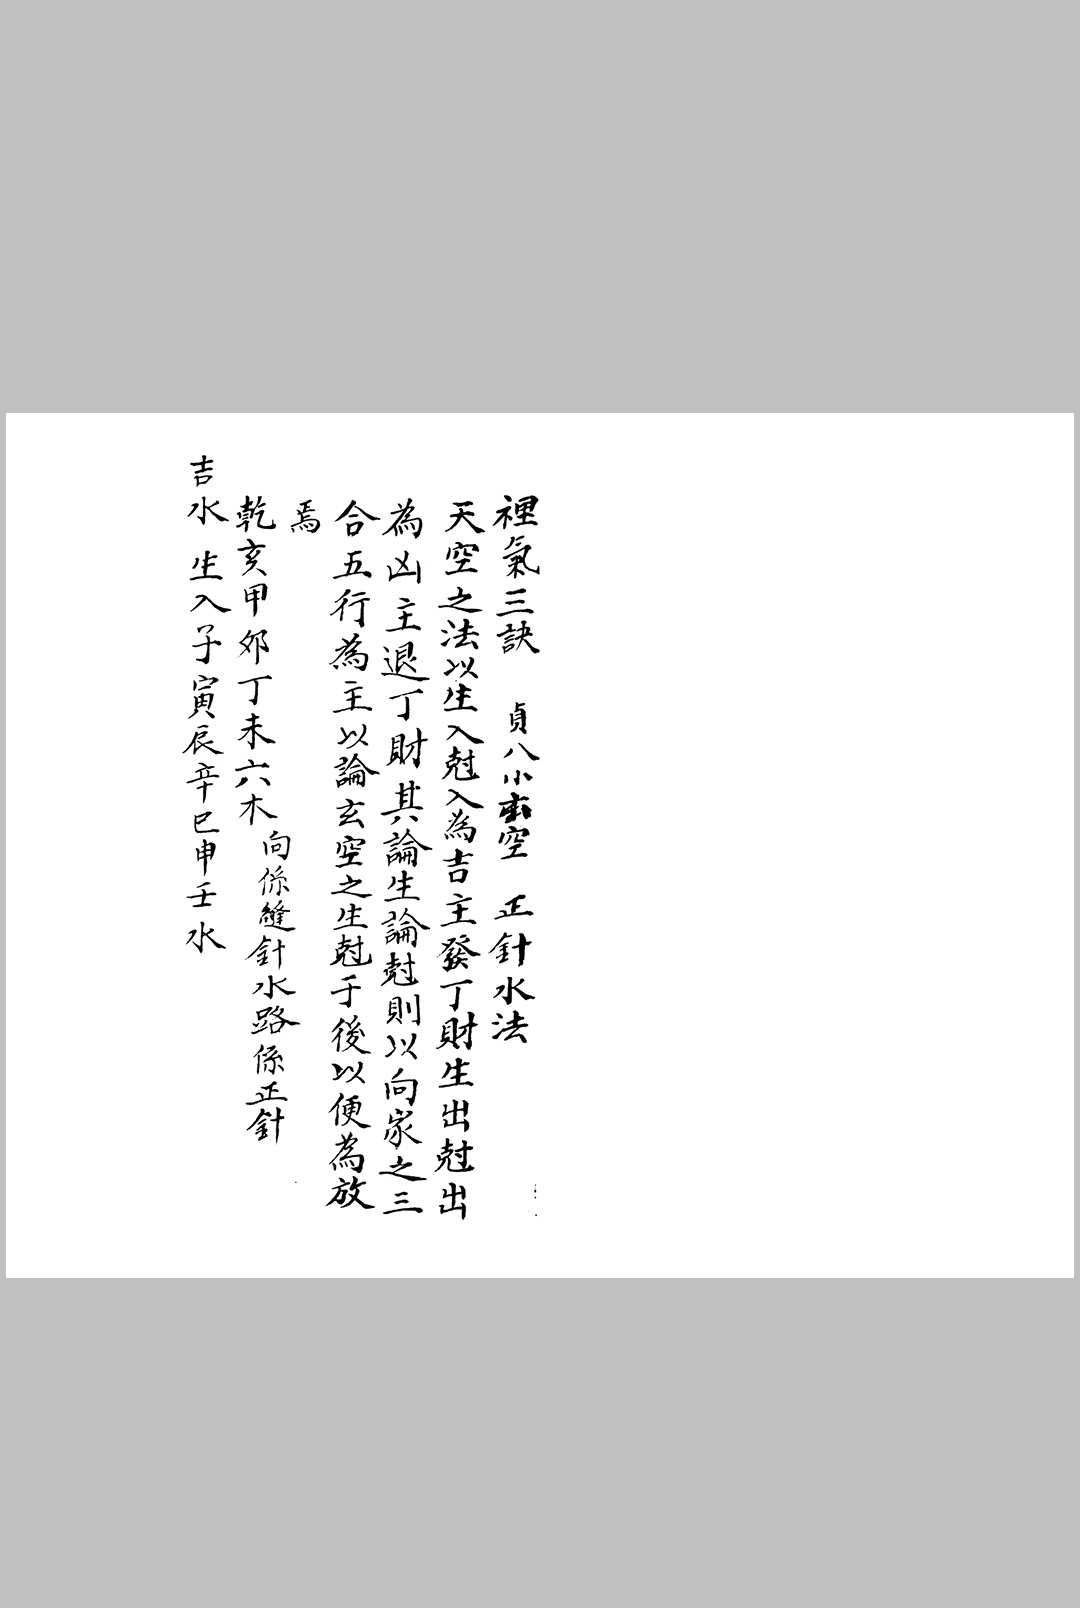 裡氣三訣 貞八小玄空 正針水法
天空之法以生入尅入為吉主發丁財生出尅出
為凶主退丁財其論生論尅則以向家之三
合五行為主以論玄空之生尅于後以便為放
焉
乾亥甲夘丁未六木 向係縫針水路係正針
吉水 生入子寅辰辛巳申壬水